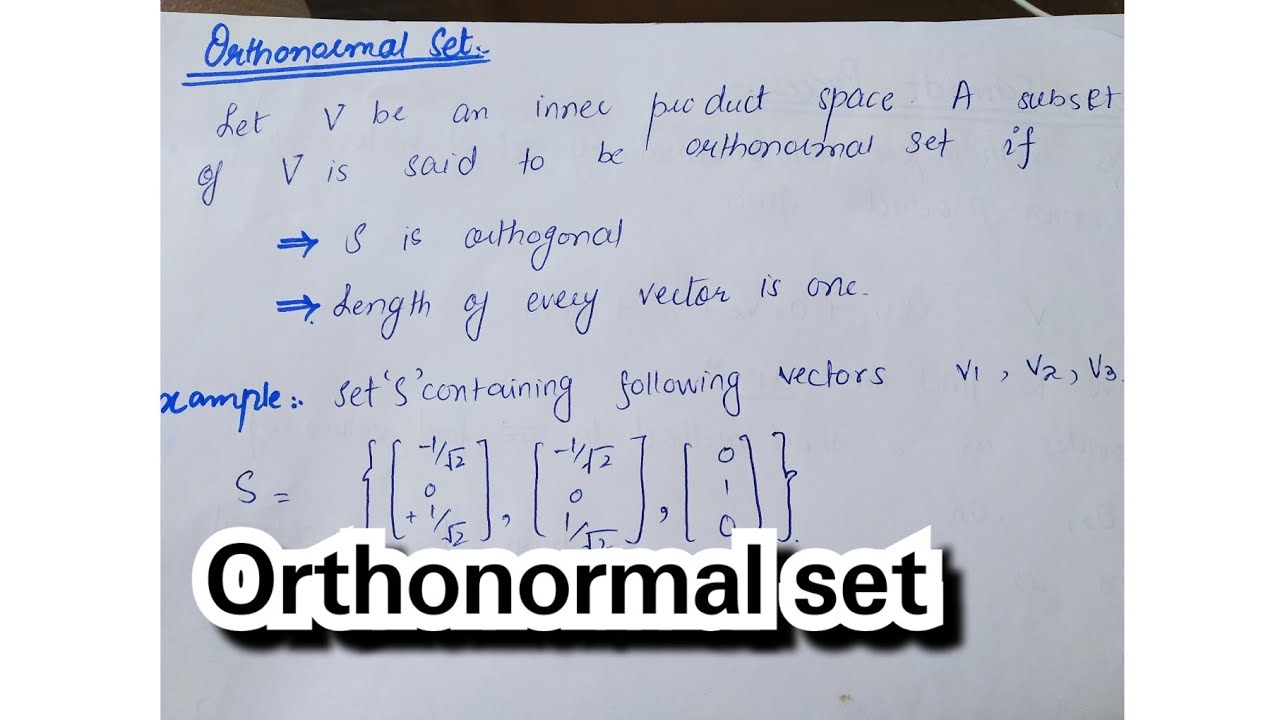 Orthonormal Set:-
Let V be an inner product space. A subset
of V is said to be orthonormal set if
⇒ S is orthogonal
⇒ Length of every vector is one.
xample:- set 'S' containing following vectors v1, v2, v3.
S = { [ -1/√2 0 +1/√2 ], [ -1/√2 0 1/√2 ], [ 0 1 0 ] }.
Orthonormal set